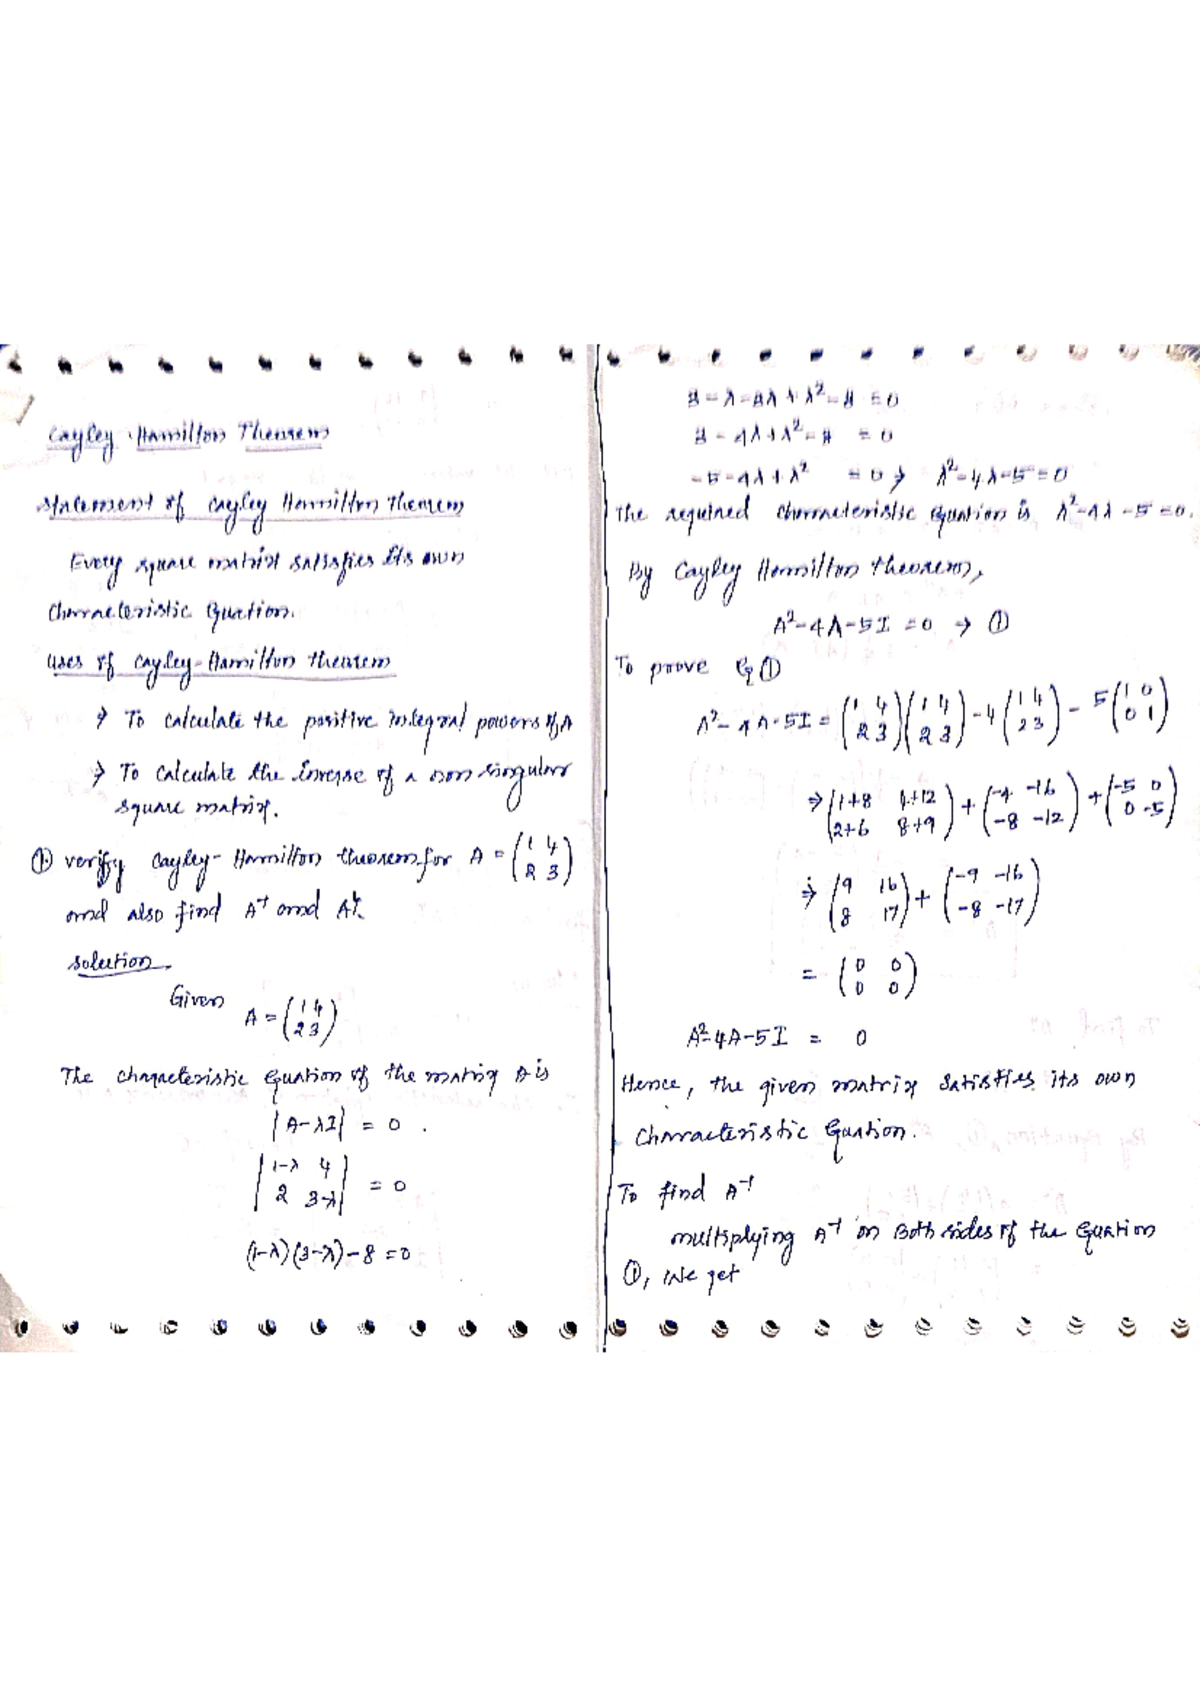 Cayley-Hamilton Theorem
Statement of Cayley Hamilton Theorem
Every square matrix satisfies its own
Characteristic Equation.
Uses of Cayley-Hamilton theorem
→ To calculate the positive integral powers of A
→ To calculate the inverse of a non singular
square matrix.
① verify Cayley-Hamilton theorem for A = (1 4
2 3)
and also find A⁻¹ and A⁴.
Solution.
Given
A = (1 4
2 3)
The characteristic Equation of the matrix A is
|A-λI| = 0.
|1-λ 4
2 3-λ| = 0
(1-λ)(3-λ)-8=0
3-λ-3λ+λ²-8=0
3-4λ+λ²-8=0
-5-4λ+λ² =0 ⇒ λ²-4λ-5=0
The required characteristic Equation is λ²-4λ-5=0.
By Cayley Hamilton theorem,
A²-4A-5I=0 → ①
To prove Eq ①
A²-4A-5I = (1 4
2 3)(1 4
2 3)-4(1 4
2 3)-5(1 0
0 1)
⇒ (1+8 4+12
2+6 8+9)+(-4 -16
-8 -12)+(-5 0
0 -5)
⇒ (9 16
8 17)+(-9 -16
-8 -17)
= (0 0
0 0)
A²-4A-5I = 0
Hence, the given matrix satisfies its own
Characteristic Equation.
To find A⁻¹
multiplying A⁻¹ on Both sides of the Equation
①, We get